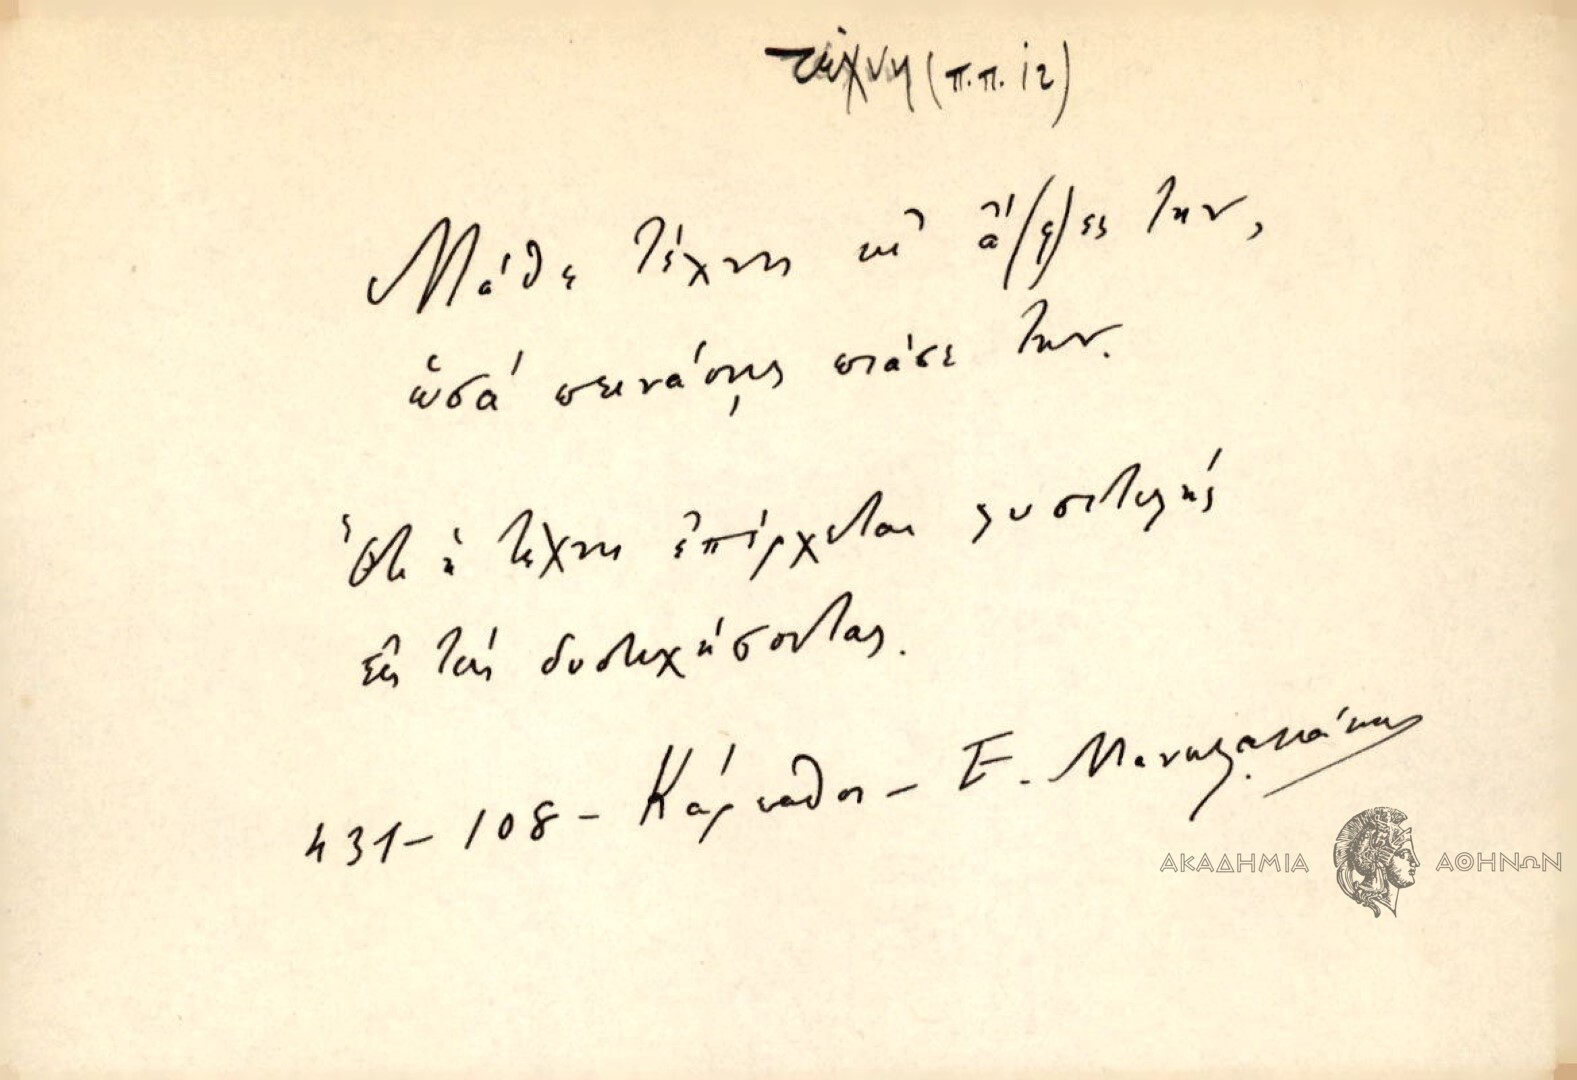 τέχνη (π.π. 12)
Μάθε τέχνη κι' ἄ(φ)ες την,
ὡσά πεινάσῃς πιάσε την.
Ὅτι ἡ τέχνη ἐπέρχεται λυσιτελής
εἰς τούς δυστυχήσοντας.
431 - 108 - Κάρπαθος - Ε. Μανωλακάκης
ΑΚΑΔΗΜΙΑ ΑΘΗΝΩΝ